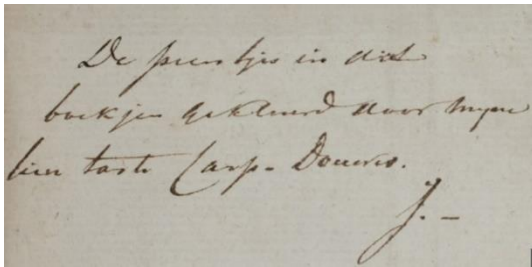 De prentjes in dit
boekjen gekleurd door myne
lieve tante Carp-Douwes.
J. –